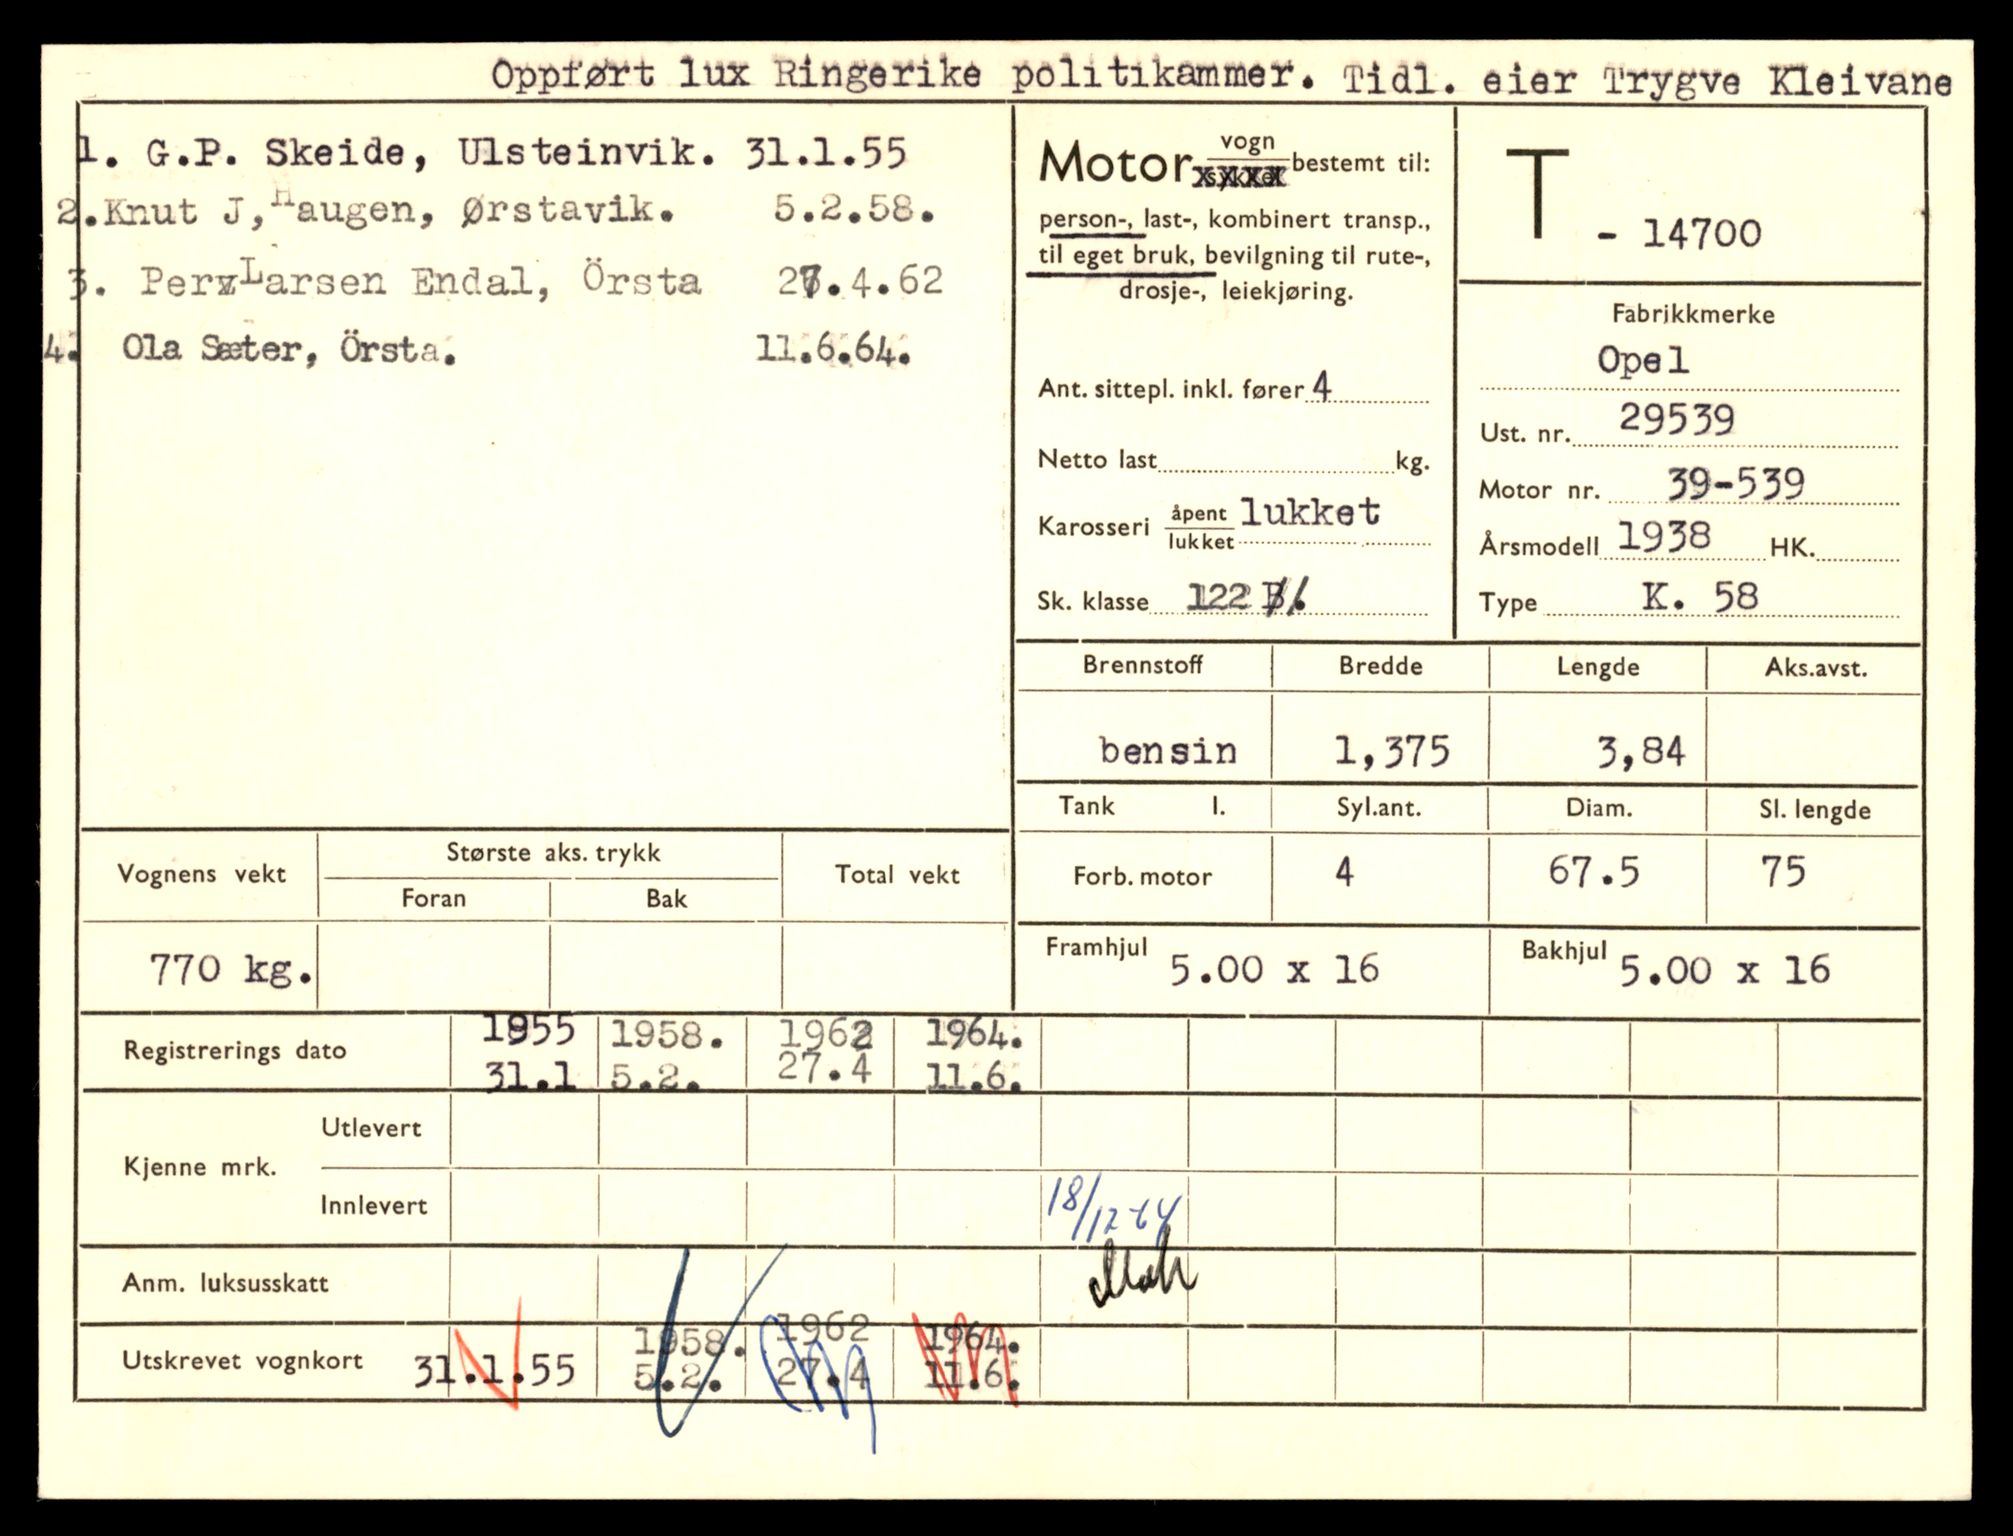 Oppført lux Ringerike politikammer. Tidl. eier Trygve Kleivane
1. G.P. Skeide, Ulsteinvik. 31.1.55
2. Knut J, Haugen, Ørstavik. 5.2.58.
3. Per Larsen Endal, Örsta 27.4.62
4. Ola Sæter, Örsta. 11.6.64.
Motor vogn bestemt til:
person-, last-, kombinert transp.,
til eget bruk, bevilgning til rute-,
drosje-, leiekjøring.
Ant. sittepl. inkl. fører 4
Netto last kg.
Karosseri åpent lukket
lukket
Sk. klasse 122
T - 14700
Fabrikkmerke
Opel
Ust. nr. 29539
Motor nr. 39-539
Årsmodell 1938 HK.
Type K. 58
Brennstoff Bredde Lengde Aks.avst.
bensin 1,375 3,84
Tank l. Syl.ant. Diam. Sl. lengde
Forb. motor 4 67.5 75
Framhjul 5.00 x 16 Bakhjul 5.00 x 16
Vognens vekt Største aks. trykk Total vekt
Foran Bak
770 kg.
Registrerings dato 1955 1958. 1962 1964.
31.1 5.2. 27.4 11.6.
Kjenne mrk. Utlevert
Innlevert 18/12-64
Anm. luksusskatt
Utskrevet vognkort 31.1.55 1958. 1962 1964.
5.2. 27.4 11.6.